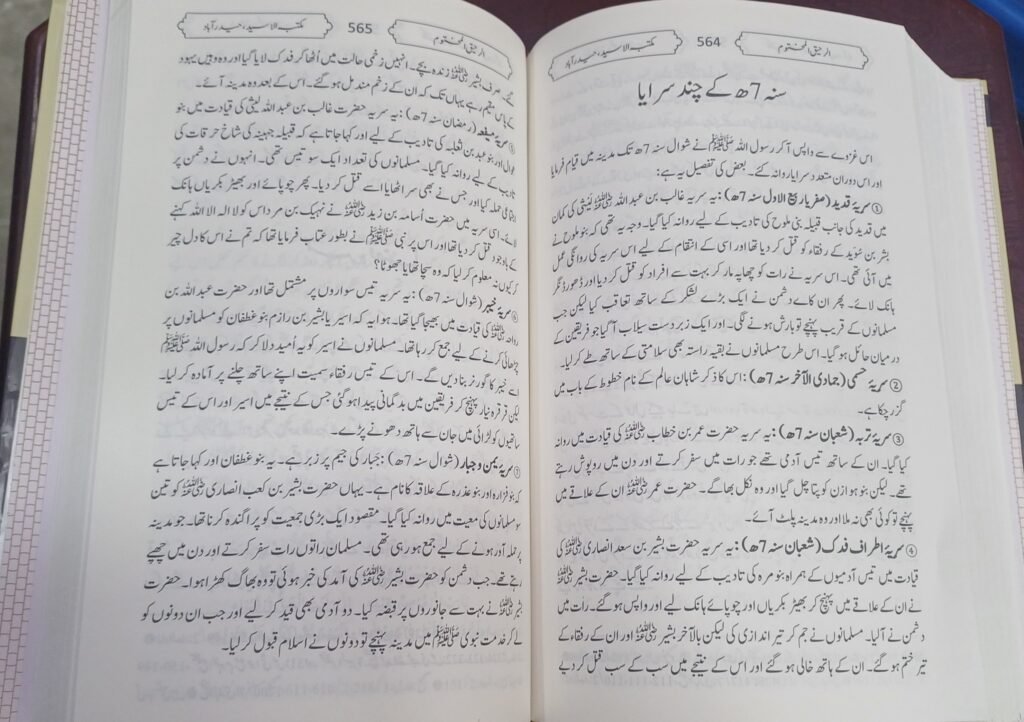 الرحیق المختوم
564
مکتبہ الاسید، حیدرآباد
سنہ 7ھ کے چند سرایا
اس غزوے سے واپس آ کر رسول اللہ ﷺ نے شوال سنہ 7ھ تک مدینہ میں قیام فرمایا
اور اس دوران متعدد سرایا روانہ کئے۔ بعض کی تفصیل یہ ہے:
① سریۂ قدید (صفر یا ربیع الاول سنہ 7ھ): یہ سریہ غالب بن عبد اللہ رضی اللہ عنہ لیثی کی کمان
میں قدید کی جانب قبیلہ بنی ملوح کی تادیب کے لیے روانہ کیا گیا۔ وجہ یہ تھی کہ بنو ملوح نے
بشر بن سُوَید کے رفقاء کو قتل کر دیا تھا اور اسی کے انتقام کے لیے اس سریہ کی روانگی عمل
میں آئی تھی۔ اس سریہ نے رات کو چھاپہ مار کر بہت سے افراد کو قتل کر دیا اور ڈھور ڈنگر
ہانک لائے۔ پھر ان کا دشمن نے ایک بڑے لشکر کے ساتھ تعاقب کیا لیکن جب
مسلمانوں کے قریب پہنچے تو بارش ہونے لگی۔ اور ایک زبردست سیلاب آگیا جو فریقین کے
درمیان حائل ہو گیا۔ اس طرح مسلمانوں نے بقیہ راستہ بھی سلامتی کے ساتھ طے کر لیا۔
② سریۂ حسمی (جمادی الآخر سنہ 7ھ): اس کا ذکر شاہان عالم کے نام خطوط کے باب میں
گزر چکا ہے۔
③ سریۂ تربہ (شعبان سنہ 7ھ): یہ سریہ حضرت عمر بن خطاب رضی اللہ عنہ کی قیادت میں روانہ
کیا گیا۔ ان کے ساتھ تیس آدمی تھے جو رات میں سفر کرتے اور دن میں روپوش رہتے
تھے۔ لیکن بنو ہوازن کو پتا چل گیا اور وہ نکل بھاگے۔ حضرت عمر رضی اللہ عنہ ان کے علاقے میں
پہنچے تو کوئی بھی نہ ملا اور وہ مدینہ پلٹ آئے۔
④ سریۂ اطراف فدک (شعبان سنہ 7ھ): یہ سریہ حضرت بشیر بن سعد انصاری رضی اللہ عنہ کی
قیادت میں تیس آدمیوں کے ہمراہ بنو مرہ کی تادیب کے لیے روانہ کیا گیا۔ حضرت بشیر رضی اللہ عنہ
نے ان کے علاقے میں پہنچ کر بھیڑ بکریاں اور چوپائے ہانک لیے اور واپس ہو گئے۔ رات میں
دشمن نے آلیا۔ مسلمانوں نے جم کر تیر اندازی کی لیکن بالآخر بشیر رضی اللہ عنہ اور ان کے رفقاء کے
تیر ختم ہو گئے۔ ان کے ہاتھ خالی ہو گئے اور اس کے نتیجے میں سب کے سب قتل کر دیے
الرحیق المختوم
565
مکتبہ الاسید، حیدرآباد
گئے۔ صرف بشیر رضی اللہ عنہ زندہ بچے۔ انہیں زخمی حالت میں اٹھا کر فدک لایا گیا اور وہ وہیں یہود
کے پاس مقیم رہے یہاں تک کہ ان کے زخم مندمل ہو گئے۔ اس کے بعد وہ مدینہ آئے۔
⑤ سریۂ میفعہ (رمضان سنہ 7ھ): یہ سریہ حضرت غالب بن عبد اللہ لیثی کی قیادت میں بنو
عوال اور بنو عبد بن ثعلبہ کی تادیب کے لیے اور کہا جاتا ہے کہ قبیلہ جہینہ کی شاخ حرقات کی
تادیب کے لیے روانہ کیا گیا۔ مسلمانوں کی تعداد ایک سو تیس تھی۔ انہوں نے دشمن پر
اجتماعی حملہ کیا اور جس نے بھی سر اٹھایا اسے قتل کر دیا۔ پھر چوپائے اور بھیڑ بکریاں ہانک
لائے۔ اسی سریہ میں حضرت اُسامہ بن زید رضی اللہ عنہ نے نہیک بن مرداس کو لا الہ الا اللہ کہنے
کے باوجود قتل کر دیا تھا اور اس پر نبی ﷺ نے بطور عتاب فرمایا تھا کہ تم نے اس کا دل چیر
کر کیوں نہ معلوم کر لیا کہ وہ سچا تھا یا جھوٹا؟
⑥ سریۂ خیبر (شوال سنہ 7ھ): یہ سریہ تیس سواروں پر مشتمل تھا اور حضرت عبد اللہ بن
رواحہ رضی اللہ عنہ کی قیادت میں بھیجا گیا تھا۔ ہوا یہ کہ اسیر یا بشیر بن رازم بنو غطفان کو مسلمانوں پر
چڑھائی کرنے کے لیے جمع کر رہا تھا۔ مسلمانوں نے اسیر کو یہ اُمید دلا کر کہ رسول اللہ ﷺ
اسے خیبر کا گورنر بنا دیں گے۔ اس کے تیس رفقاء سمیت اپنے ساتھ چلنے پر آمادہ کر لیا۔
لیکن قرقرہ نیار پہنچ کر فریقین میں بدگمانی پیدا ہو گئی جس کے نتیجے میں اسیر اور اس کے تیس
ساتھیوں کو لڑائی میں جان سے ہاتھ دھونے پڑے۔
⑦ سریۂ یمن و جبار (شوال سنہ 7ھ): جَبار کی جیم پر زبر ہے۔ یہ بنو غطفان اور کہا جاتا ہے
کہ بنو فزارہ اور بنو عذرہ کے علاقہ کا نام ہے۔ یہاں حضرت بشیر بن کعب انصاری رضی اللہ عنہ کو تین
سو مسلمانوں کی معیت میں روانہ کیا گیا۔ مقصود ایک بڑی جمعیت کو پراگندہ کرنا تھا۔ جو مدینہ
پر حملہ آور ہونے کے لیے جمع ہو رہی تھی۔ مسلمان راتوں رات سفر کرتے اور دن میں چھپے
رہتے تھے۔ جب دشمن کو حضرت بشیر رضی اللہ عنہ کی آمد کی خبر ہوئی تو وہ بھاگ کھڑا ہوا۔ حضرت
بشیر رضی اللہ عنہ نے بہت سے جانوروں پر قبضہ کیا۔ دو آدمی بھی قید کر لیے اور جب ان دونوں کو
لے کر خدمت نبوی ﷺ میں مدینہ پہنچے تو دونوں نے اسلام قبول کر لیا۔